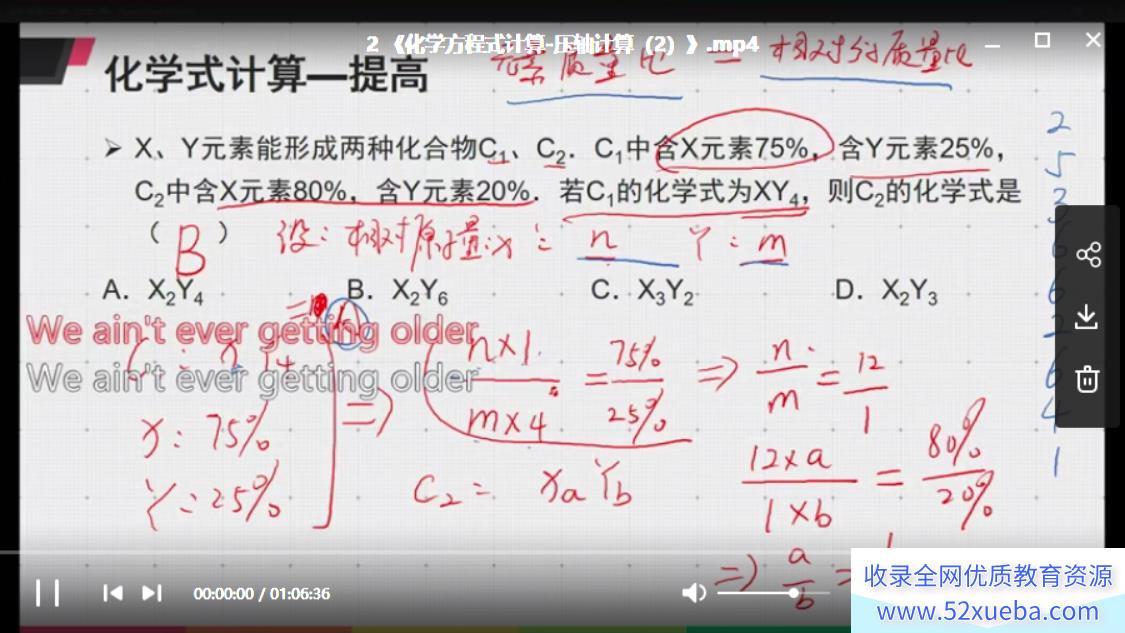 2 《化学方程式计算-压轴计算（2）》.mp4
化学式计算—提高
元素质量比 = 相对分质量比
➢ X、Y元素能形成两种化合物C₁、C₂．C₁中含X元素75%，含Y元素25%，
C₂中含X元素80%，含Y元素20%．若C₁的化学式为XY₄，则C₂的化学式是
（ B ） 设：相对原子量：X：n Y：m
A．X₂Y₄ B．X₂Y₆ C．X₃Y₂ D．X₂Y₃
We ain't ever getting older
We ain't ever getting older
X：75%
Y：25%
⇒ n×1 / m×4 = 75% / 25% ⇒ n / m = 12 / 1
C₂ = XaYb
12×a / 1×b = 80% / 20%
⇒ a / b =
2
5
3
6
6
2
6
4
1
00:00:00 / 01:06:36
收录全网优质教育资源
www.52xueba.com